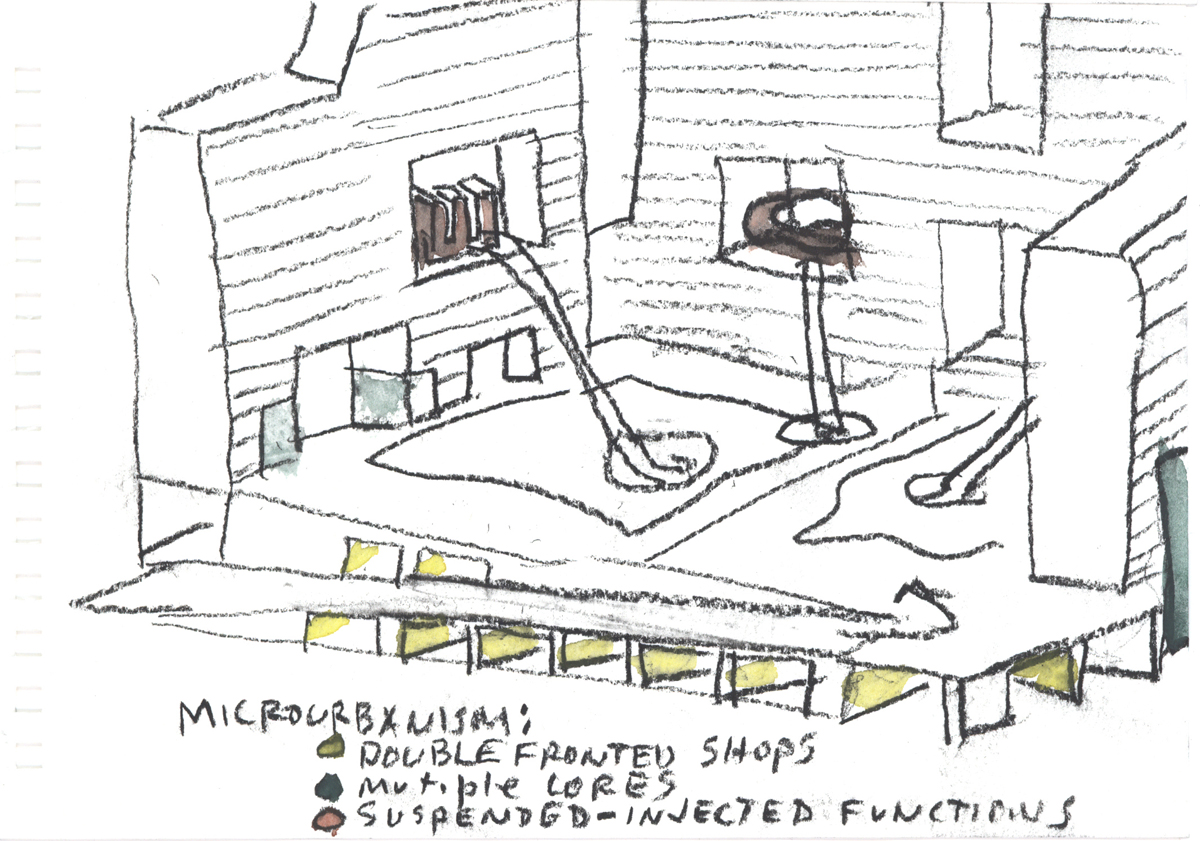 MICROURBANISM:
DOUBLE FRONTED SHOPS
Mutiple CORES
SUSPENDED-INJECTED FUNCTIONS